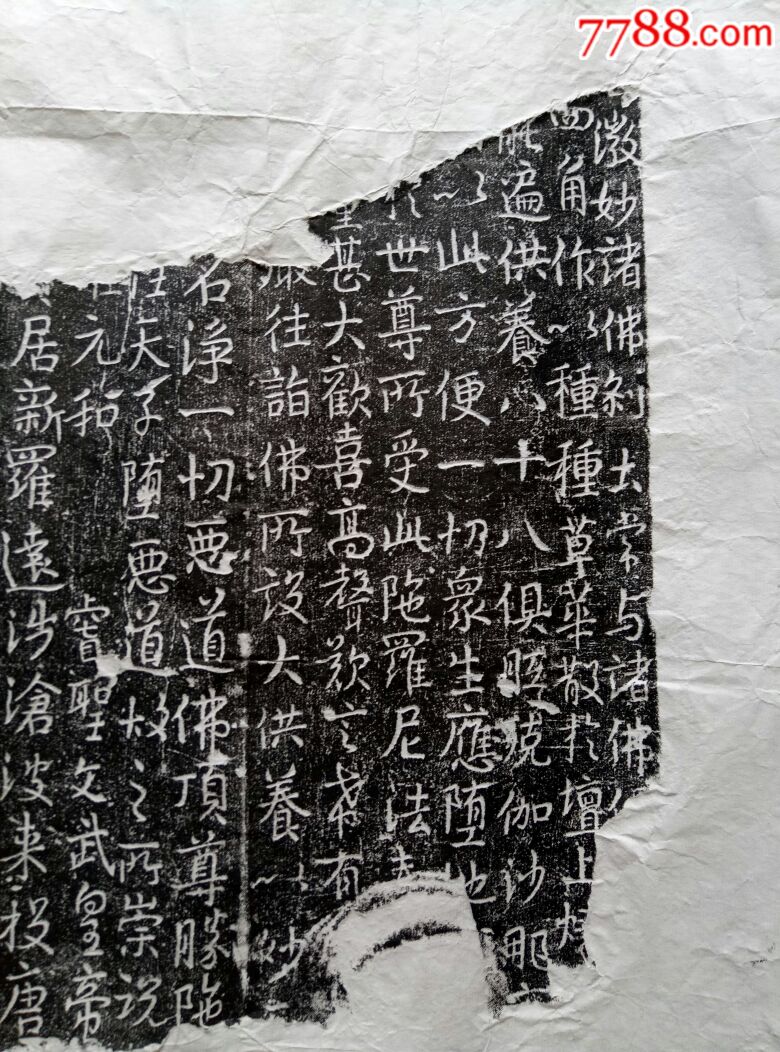 7788.com
微妙諸佛剎大常与諸佛
四角作以種種草華散於壇上燒
能遍供養八十八俱胝殑伽沙那
以此方便一切衆生應墮地
於世尊所受此陁羅尼法
甚大歡喜高聲歎言希有
嚴往詣佛所設大供養以妙
名淨一切惡道佛頂尊勝陁
住天子墮惡道故之所崇説
元和 睿聖文武皇帝
居新羅遠涉滄波来投唐